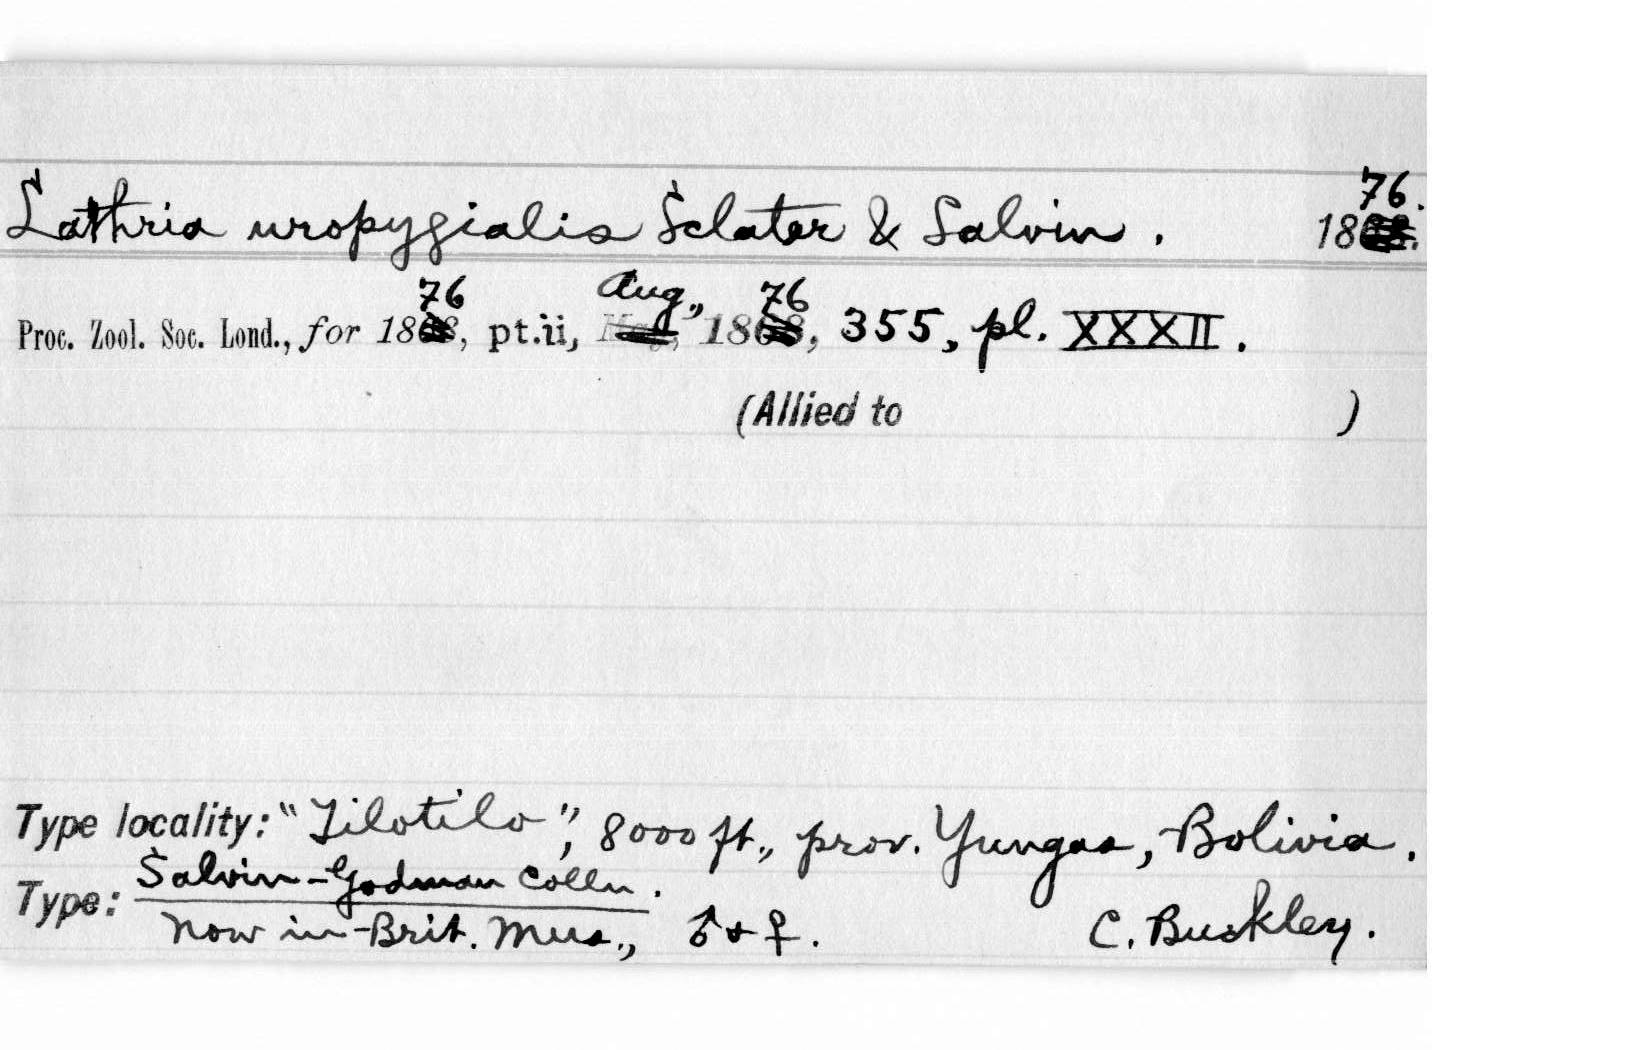 Lathria uropygialis Sclater & Salvin. 1876.
Proc. Zool. Soc. Lond., for 1876, pt.ii, Aug., 1876, 355, pl. XXXII.
(Allied to )
Type locality: "Tilotilo", 8000 ft., prov. Yungas, Bolivia.
Type: Salvin-Godman Colln.
Now in Brit. Mus., ♂ & ♀. C. Buckley.